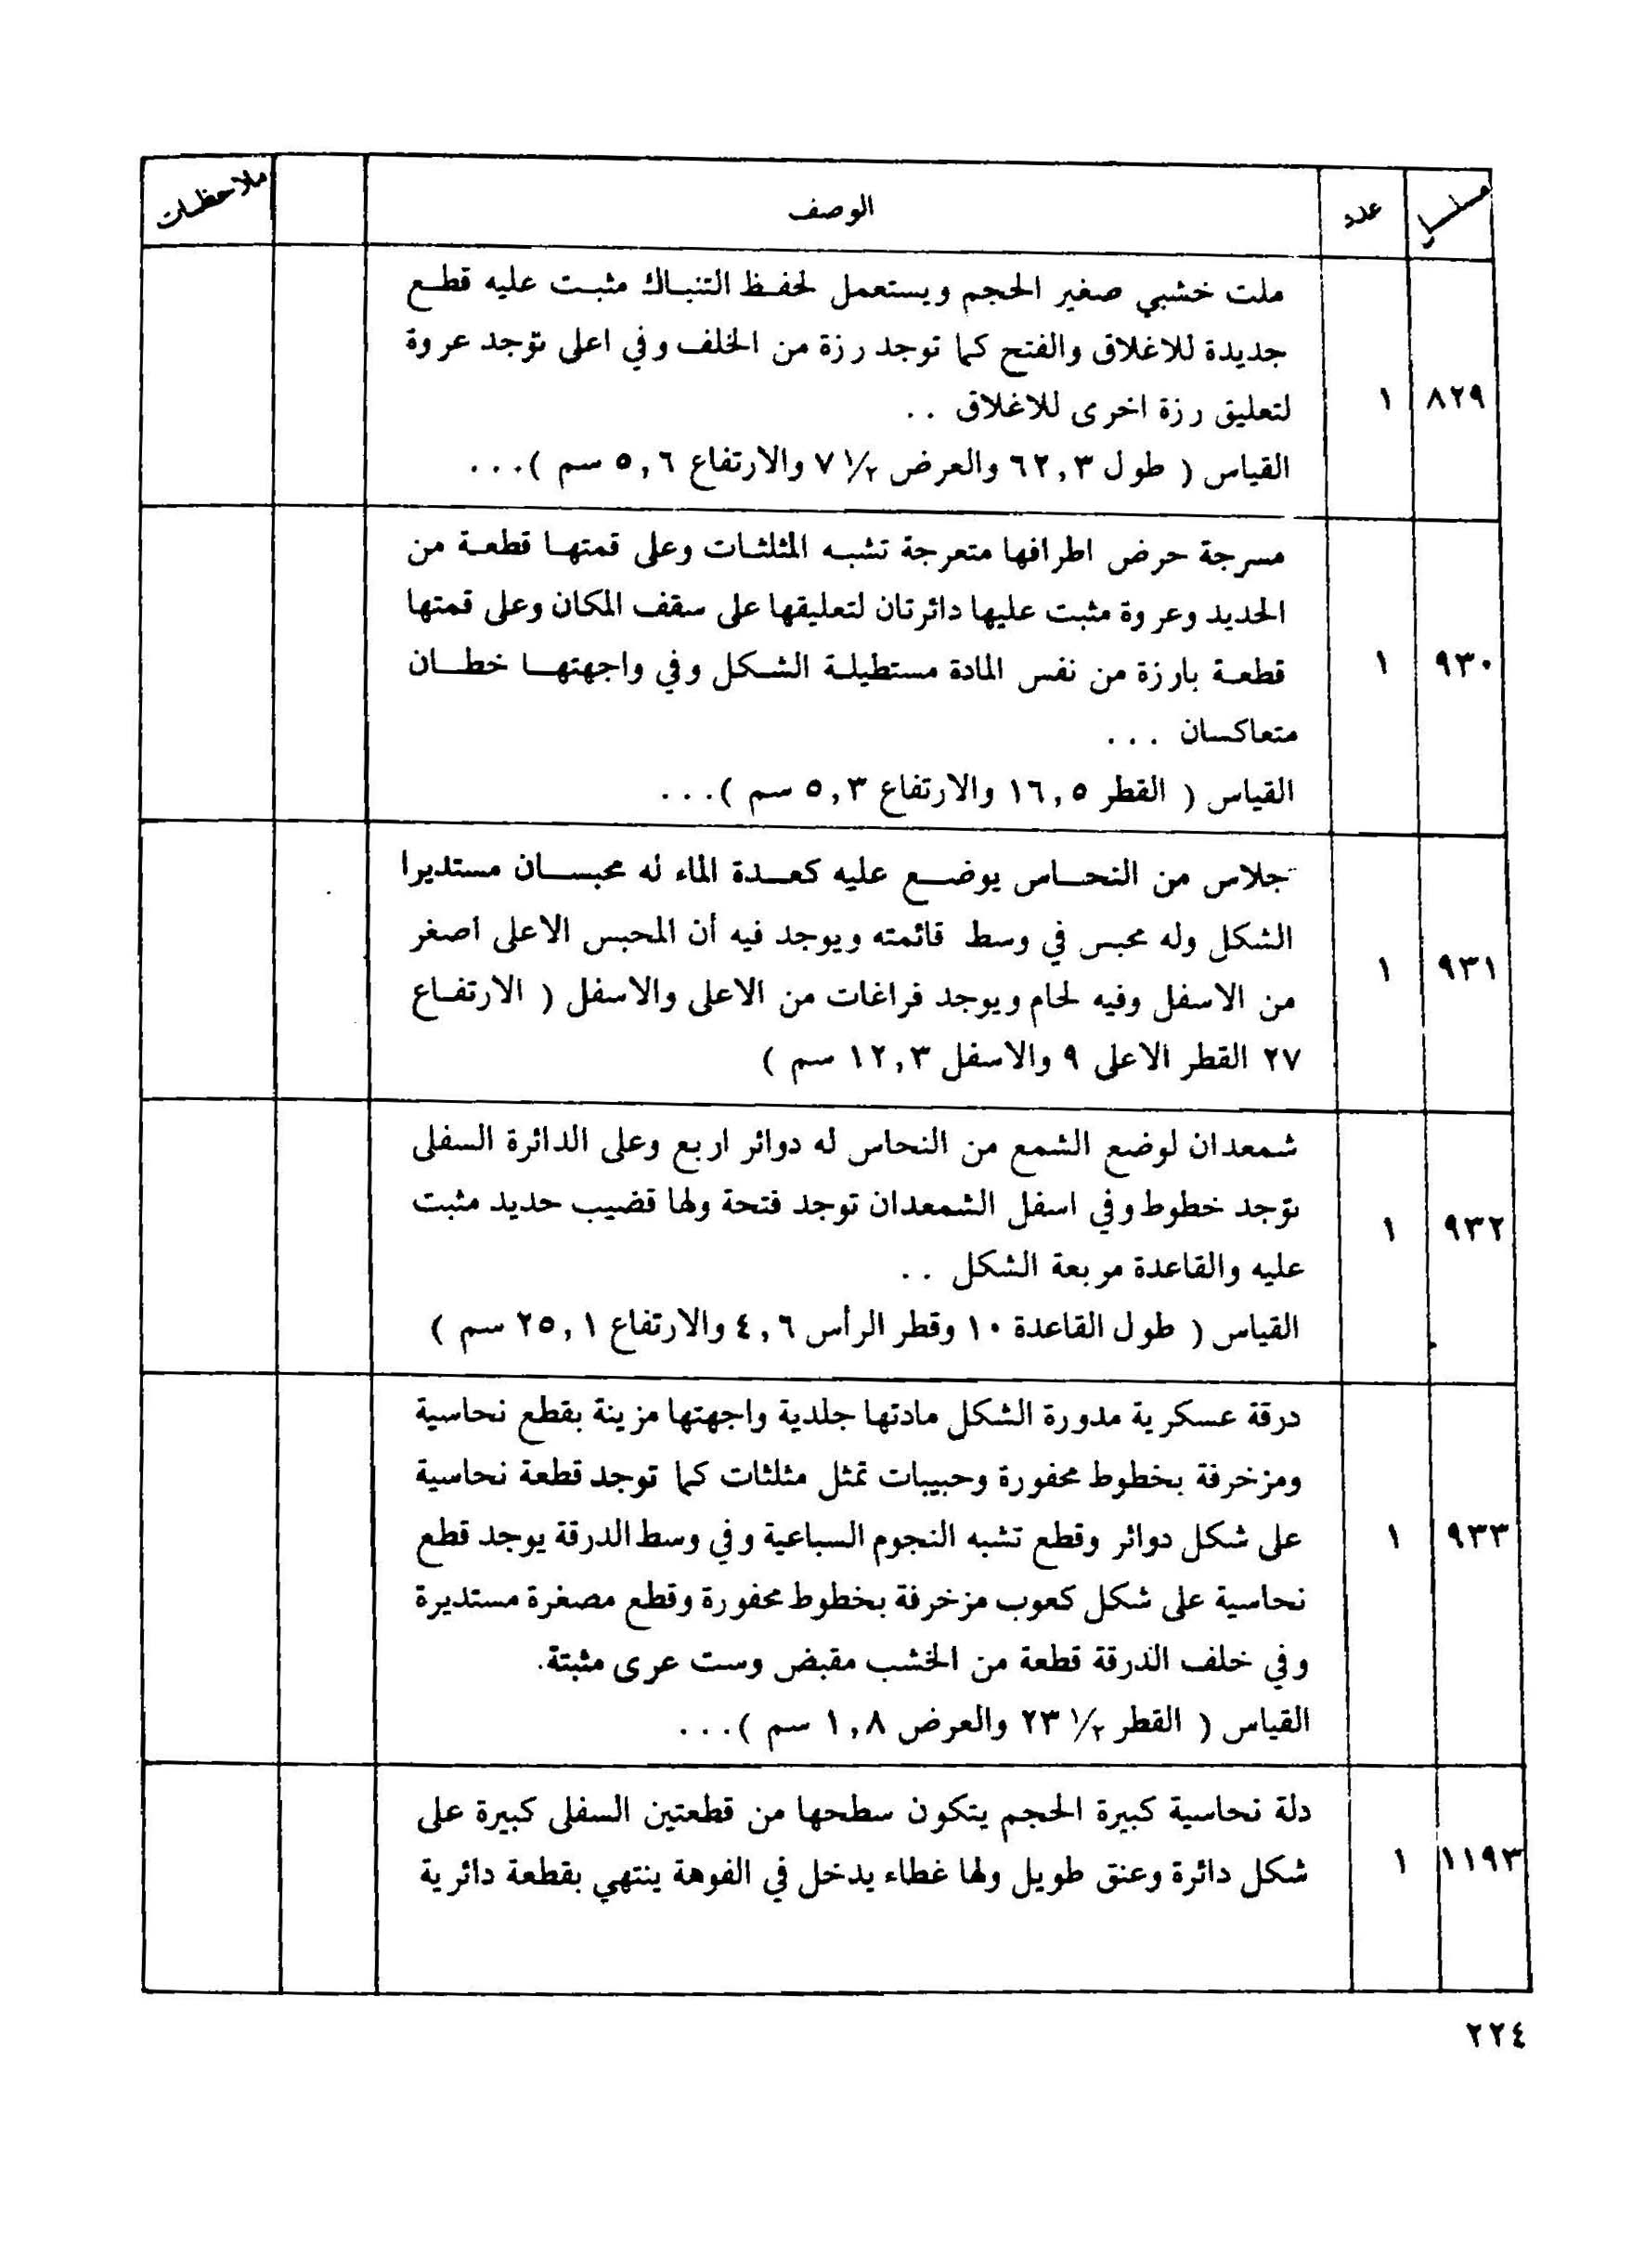 مسلسل عدد الوصف ملاحظات
ملت خشبي صغير الحجم ويستعمل لحفظ التنباك مثبت عليه قطع
جديدة للاغلاق والفتح كما توجد رزة من الخلف وفي اعلى توجد عروة
٨٢٩ ١
لتعليق رزة اخرى للاغلاق . .
القياس ( طول ٦٢,٣ والعرض ٧ ١/٢ والارتفاع ٥,٦ سم ) . . .
مسرجة حرض اطرافها متعرجة تشبه المثلثات وعلى قمتها قطعة من
الحديد وعروة مثبت عليها دائرتان لتعليقها على سقف المكان وعلى قمتها
٩٣٠ ١ قطعة بارزة من نفس المادة مستطيلة الشكل وفي واجهتها خطان
متعاكسان . . .
القياس ( القطر ١٦,٥ والارتفاع ٥,٣ سم ) . . .
جلاس من النحاس يوضع عليه كعدة الماء له محبسان مستديرا
الشكل وله محبس في وسط قائمته ويوجد فيه أن المحبس الاعلى اصغر
٩٣١ ١
من الاسفل وفيه لحام ويوجد فراغات من الاعلى والاسفل ( الارتفاع
٢٧ القطر الاعلى ٩ والاسفل ١٢,٣ سم )
شمعدان لوضع الشمع من النحاس له دوائر اربع وعلى الدائرة السفلى
توجد خطوط وفي اسفل الشمعدان توجد فتحة ولها قضيب حديد مثبت
٩٣٢ ١
عليه والقاعدة مربعة الشكل . .
القياس ( طول القاعدة ١٠ وقطر الرأس ٤,٦ والارتفاع ٢٥,١ سم )
درقة عسكرية مدورة الشكل مادتها جلدية واجهتها مزينة بقطع نحاسية
ومزخرفة بخطوط محفورة وحبيبات تمثل مثلثات كما توجد قطعة نحاسية
٩٣٣ ١ على شكل دوائر وقطع تشبه النجوم السباعية وفي وسط الدرقة يوجد قطع
نحاسية على شكل كعوب مزخرفة بخطوط محفورة وقطع مصغرة مستديرة
وفي خلف الذرقة قطعة من الخشب مقبض وست عرى مثبتة.
القياس ( القطر ٢٣ ١/٢ والعرض ١,٨ سم ) . . .
دلة نحاسية كبيرة الحجم يتكون سطحها من قطعتين السفلى كبيرة على
١١٩٣ ١ شكل دائرة وعنق طويل ولها غطاء يدخل في الفوهة ينتهي بقطعة دائرية
٢٢٤